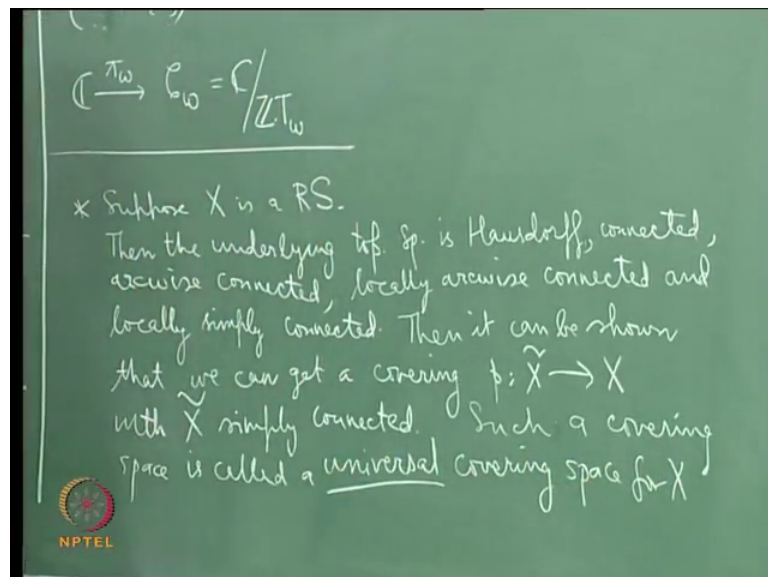 ℂ —π_ω→ 𝒞_ω = ℂ/ℤ.T_ω
* Suppose X is a RS.
Then the underlying top. sp. is Hausdorff, connected,
arcwise connected, locally arcwise connected and
locally simply connected. Then it can be shown
that we can get a covering p: X̃ → X
with X̃ simply connected. Such a covering
space is called a universal covering space for X
NPTEL